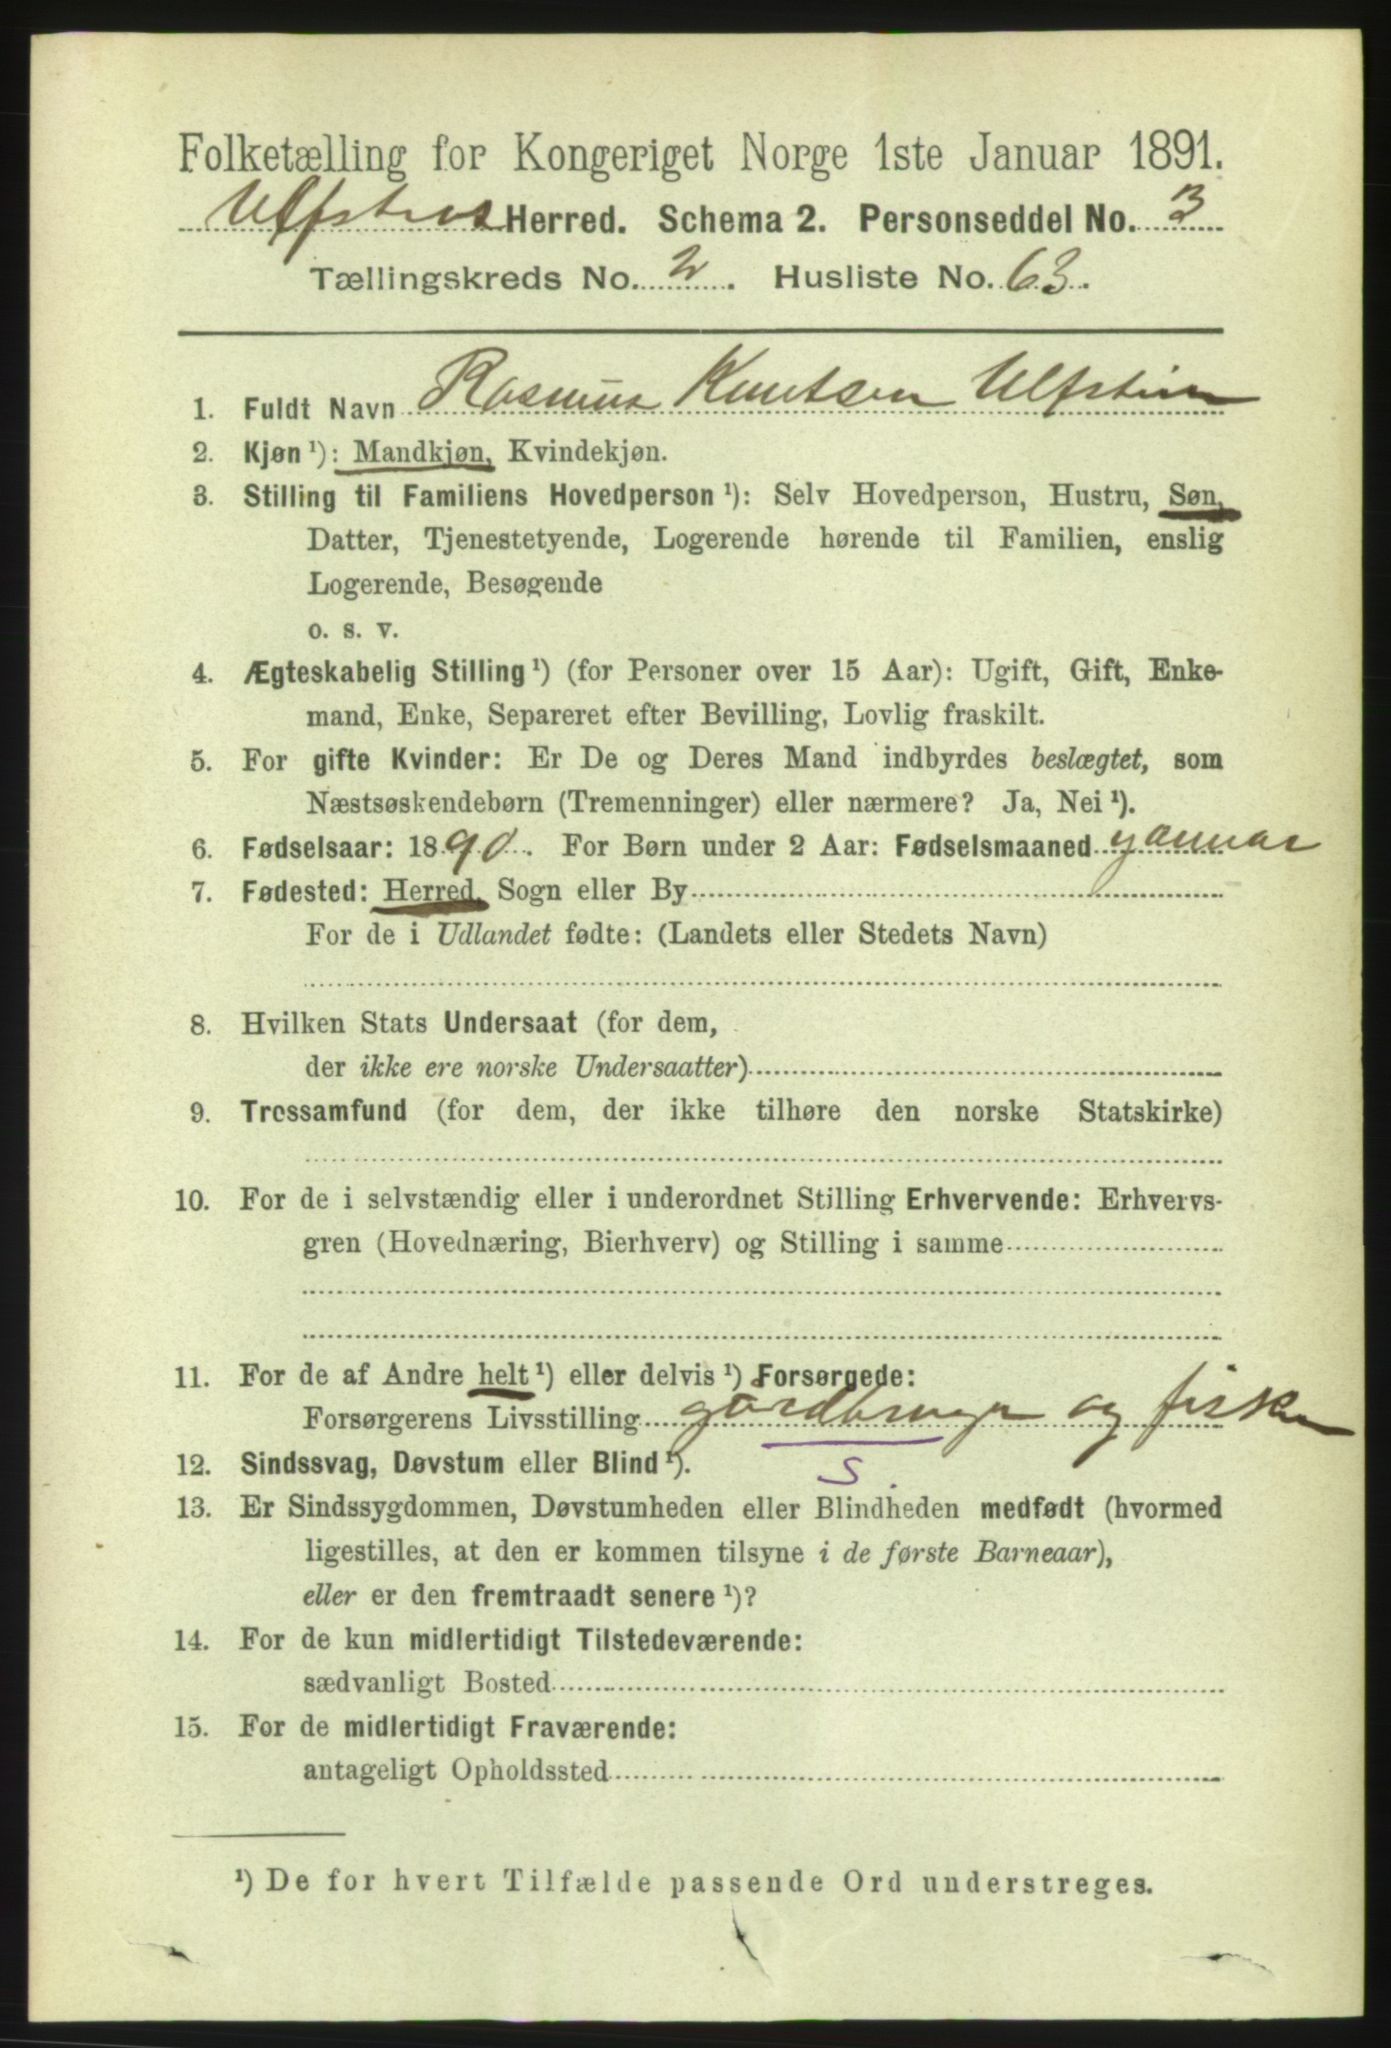 Folketælling for Kongeriget Norge 1ste Januar 1891.
Ulfsten Herred. Schema 2. Personseddel No. 3
Tællingskreds No. 2. Husliste No. 63.
1. Fuldt Navn Rasmus Knutsen Ulfstein
2. Kjøn ¹): Mandkjøn, Kvindekjøn.
3. Stilling til Familiens Hovedperson ¹): Selv Hovedperson, Hustru, Søn,
Datter, Tjenestetyende, Logerende hørende til Familien, enslig
Logerende, Besøgende
o. s. v.
4. Ægteskabelig Stilling ¹) (for Personer over 15 Aar): Ugift, Gift, Enke-
mand, Enke, Separeret efter Bevilling, Lovlig fraskilt.
5. For gifte Kvinder: Er De og Deres Mand indbyrdes beslægtet, som
Næstsøskendebørn (Tremenninger) eller nærmere? Ja, Nei ¹).
6. Fødselsaar: 1890. For Børn under 2 Aar: Fødselsmaaned januar
7. Fødested: Herred, Sogn eller By
For de i Udlandet fødte: (Landets eller Stedets Navn)
8. Hvilken Stats Undersaat (for dem,
der ikke ere norske Undersaatter)
9. Trossamfund (for dem, der ikke tilhøre den norske Statskirke)
10. For de i selvstændig eller i underordnet Stilling Erhvervende: Erhvervs-
gren (Hovednæring, Bierhverv) og Stilling i samme
11. For de af Andre helt ¹) eller delvis ¹) Forsørgede:
Forsørgerens Livsstilling gardbruger og fisker
12. Sindssvag, Døvstum eller Blind ¹). S.
13. Er Sindssygdommen, Døvstumheden eller Blindheden medfødt (hvormed
ligestilles, at den er kommen tilsyne i de første Barneaar),
eller er den fremtraadt senere ¹)?
14. For de kun midlertidigt Tilstedeværende:
sædvanligt Bosted
15. For de midlertidigt Fraværende:
antageligt Opholdssted
¹) De for hvert Tilfælde passende Ord understreges.